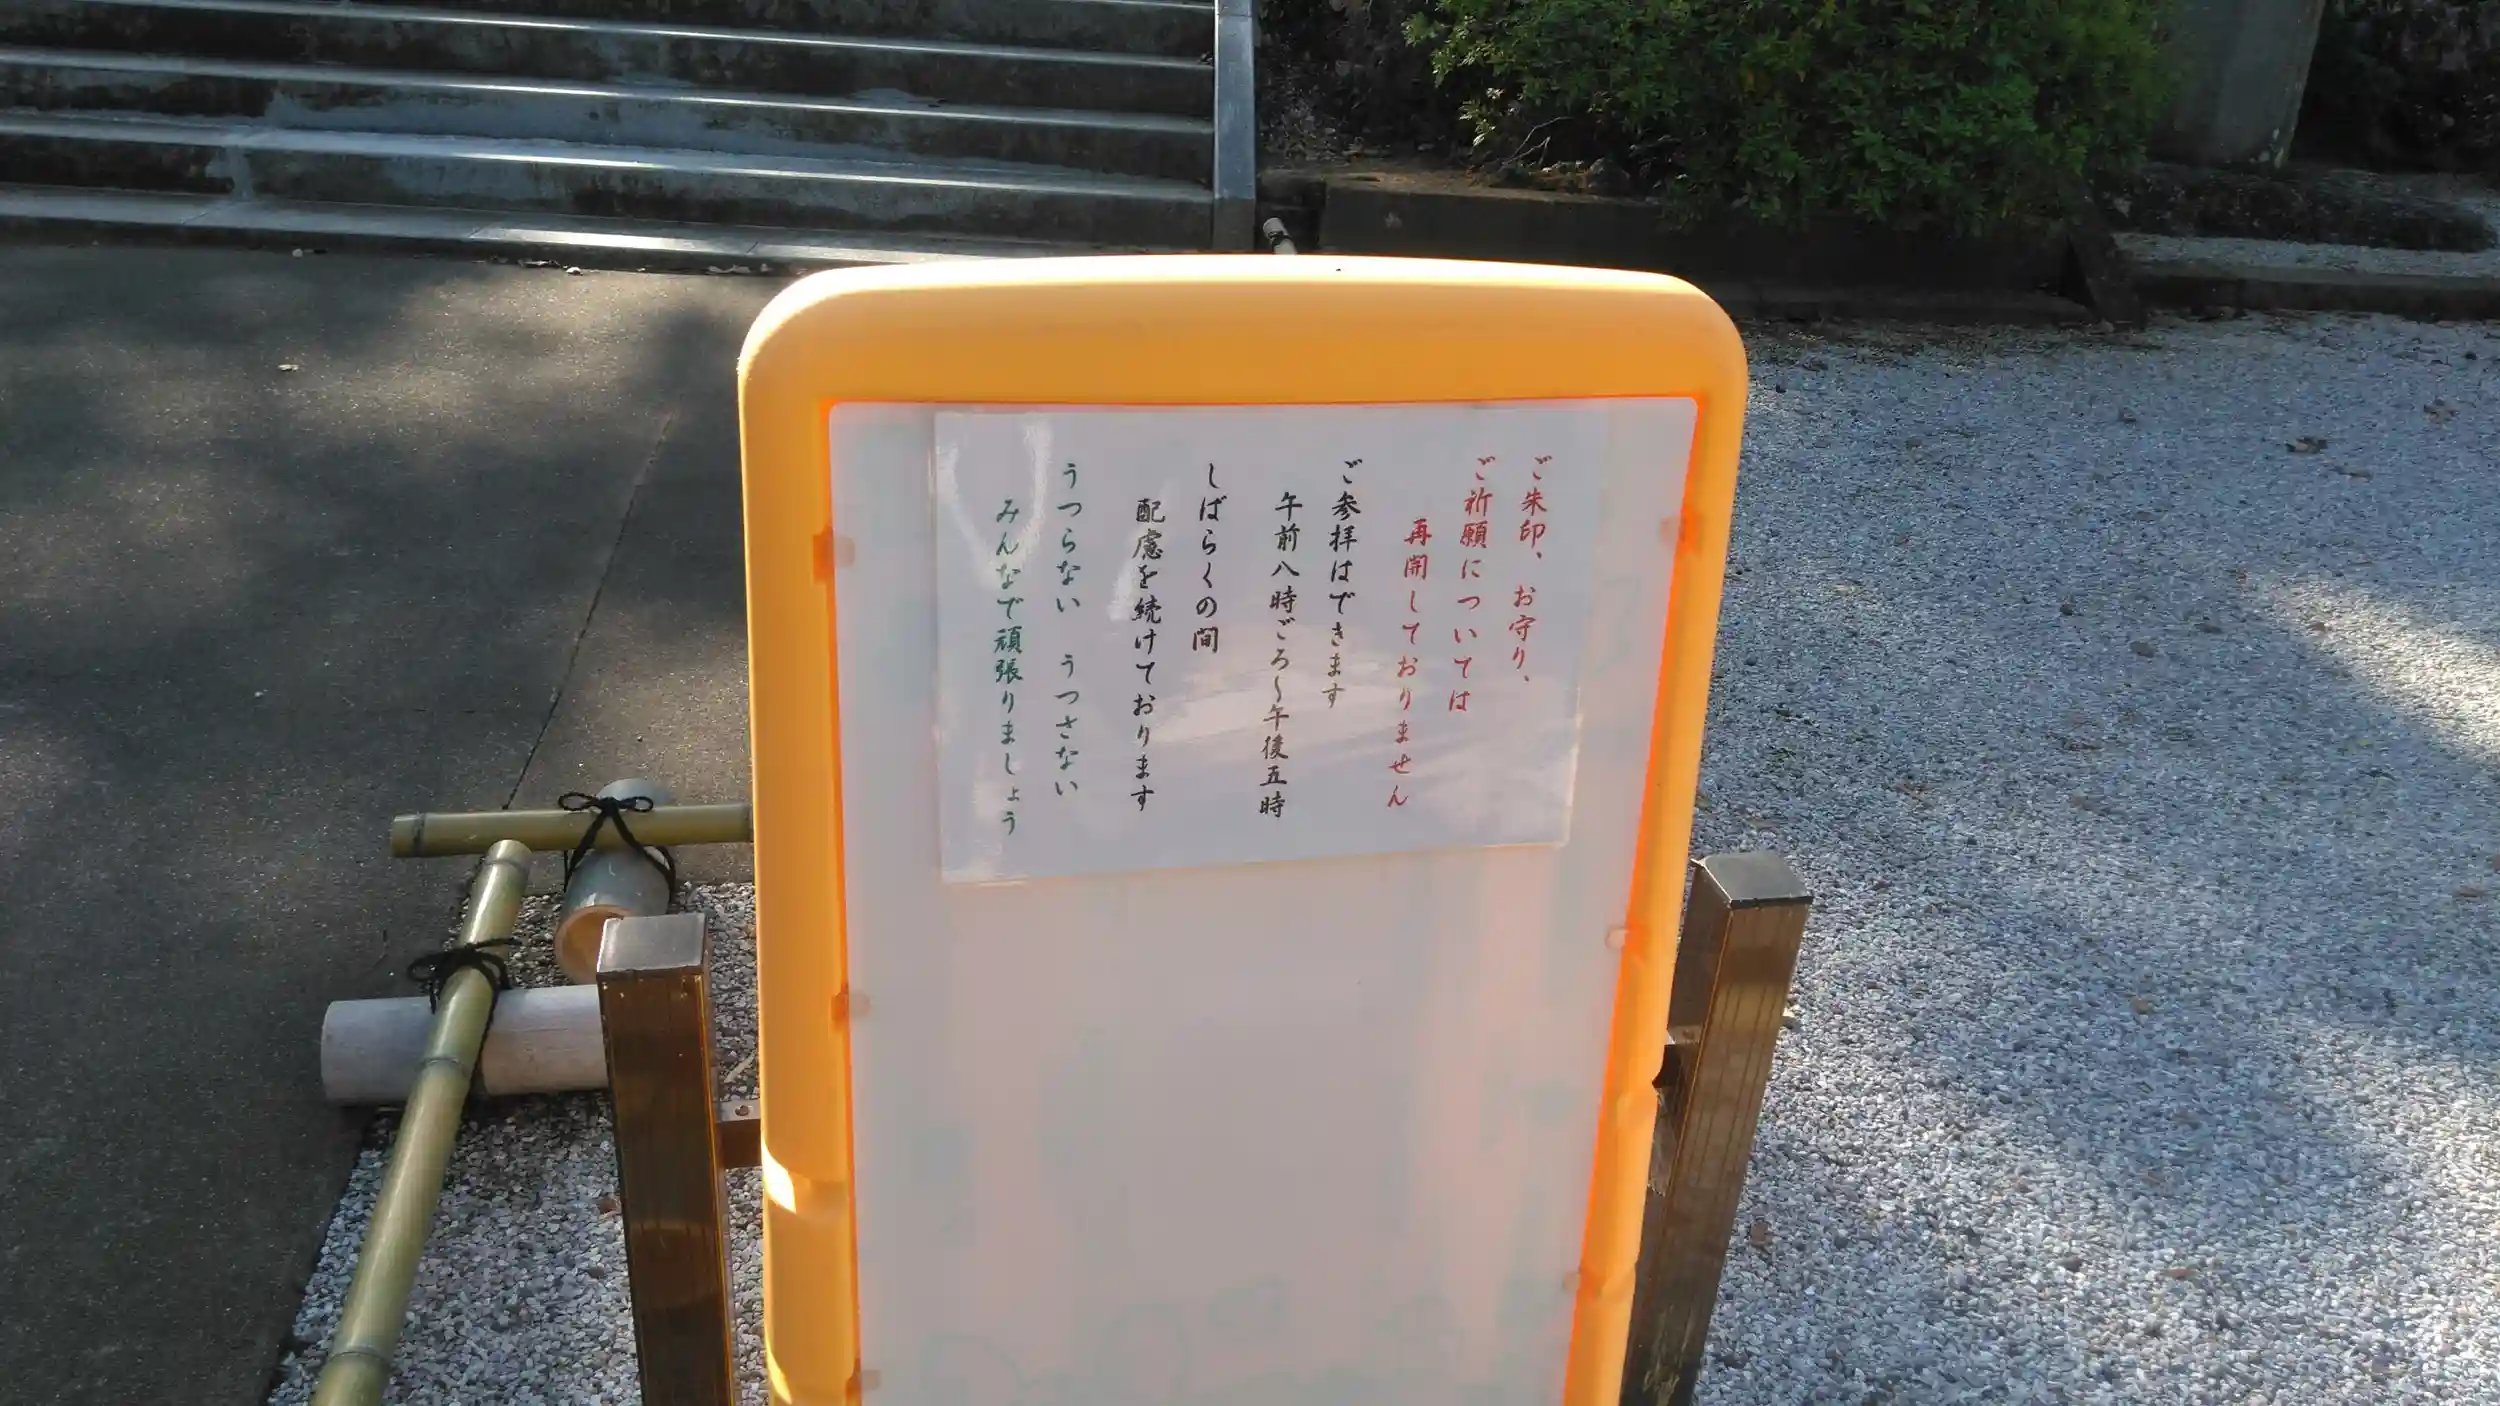 ご朱印、お守り、
ご祈願については
再開しておりません
ご参拝はできます
午前八時ごろ〜午後五時
しばらくの間
配慮を続けております
うつらない うつさない
みんなで頑張りましょう